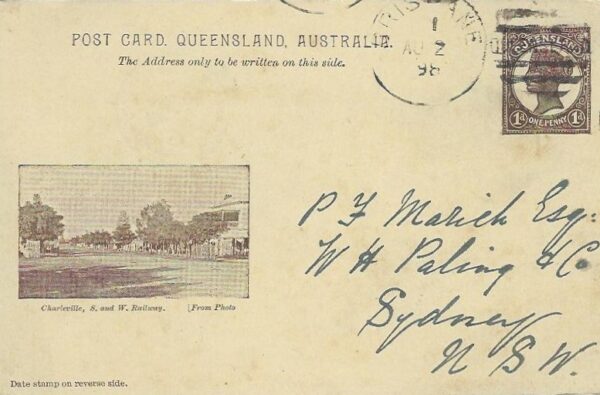 POST CARD. QUEENSLAND, AUSTRALIA.
The Address only to be written on this side.
BRISBANE
1
AU 2
98
QUEENSLAND
1d ONE PENNY 1d
P F Marich Esq:
W H Paling & Co
Sydney
N S W.
Charleville, S. and W. Railway. [From Photo
Date stamp on reverse side.